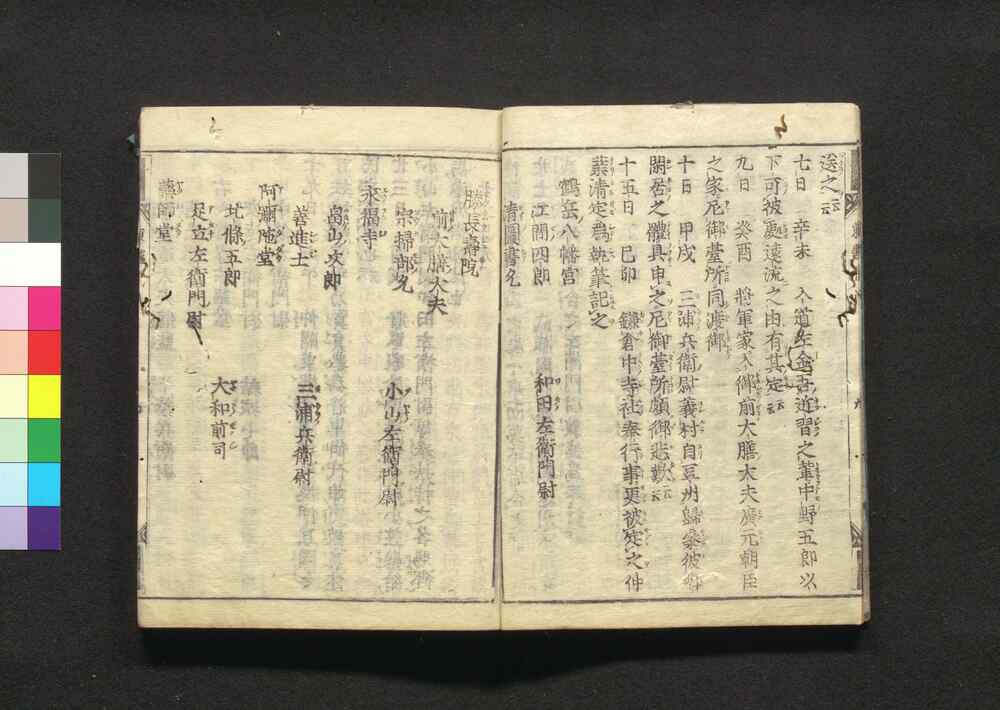 送之云云
七日 辛未 入道左金吾近習之輩中野五郎以
下可被處遠流之由有其定云云
九日 癸酉 將軍家入御前大膳大夫廣元朝臣
之家尼御臺所同渡御
十日 甲戌 三浦兵衛尉義村自豆州歸參彼
閑居之體具申之尼御臺所頗御悲歎云云
十五日 己卯 鎌倉中寺社奉行事更被定之仲
業清定為執筆記之
鶴岳八幡宮
江間四郎 和田左衛門尉
清圖書允
勝長壽院
前大膳大夫 小山左衛門尉
宗掃部允
永福寺
畠山次郎 三浦兵衛尉
善進士
阿彌陀堂
北條五郎 大和前司
足立左衛門尉
藥師堂